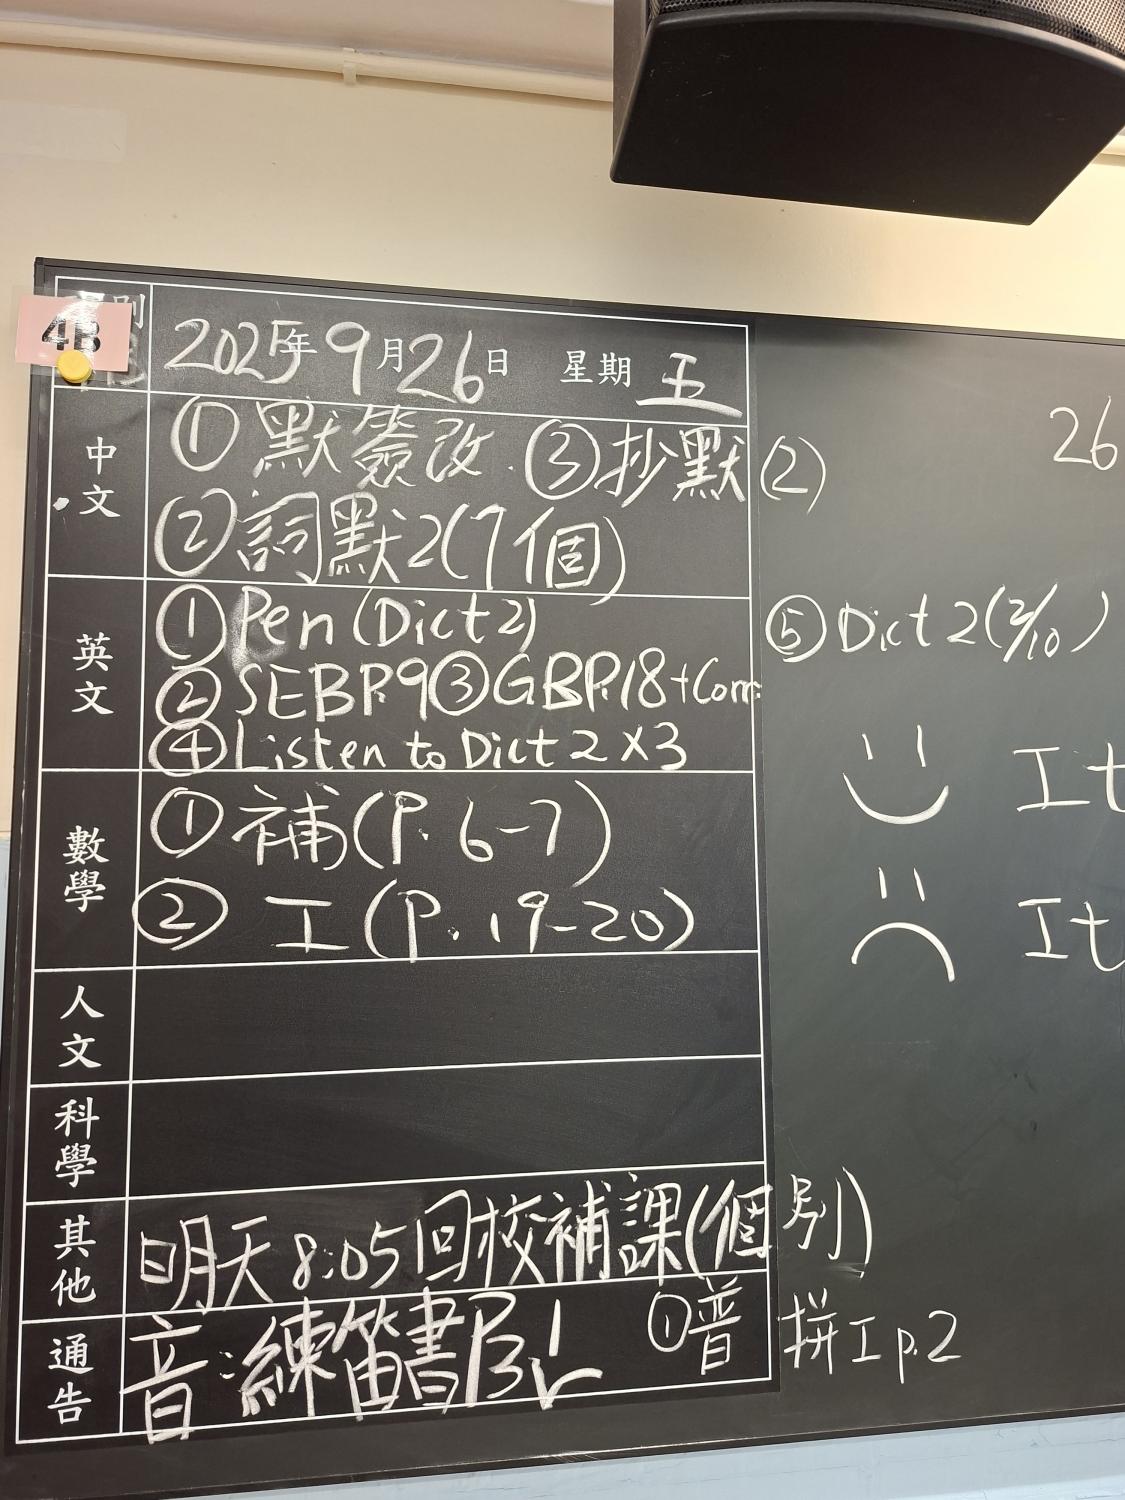 4B
2025年9月26日 星期五
中文
①默簽改 ③抄默(2)
②詞默2(7個)
英文
①Pen (Dict 2)
②SEBP.9③GBP.18+Corr.
④Listen to Dict 2 x3
⑤Dict 2 (2/10)
數學
①補(P.6-7)
②工(P.19-20)
人文
科學
其他
明天8:05回校補課(個別)
通告
音:練笛書B
①普拼工p.2
26
It
It